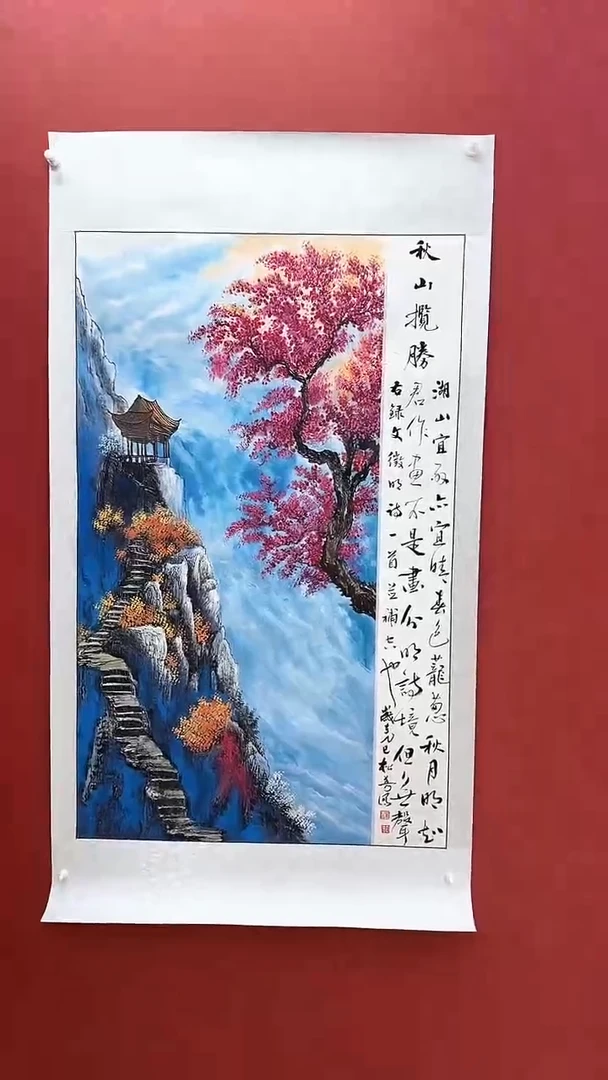 秋山攬勝
湖山宜雨亦宜晴春色蘢蔥秋月明知
君作畫不是畫分明詩境但無聲
右錄文徵明詩一首並補
歲在乙巳松